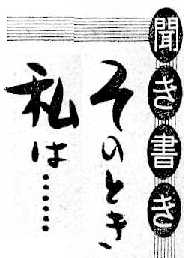 聞き書き
そのとき
私は……